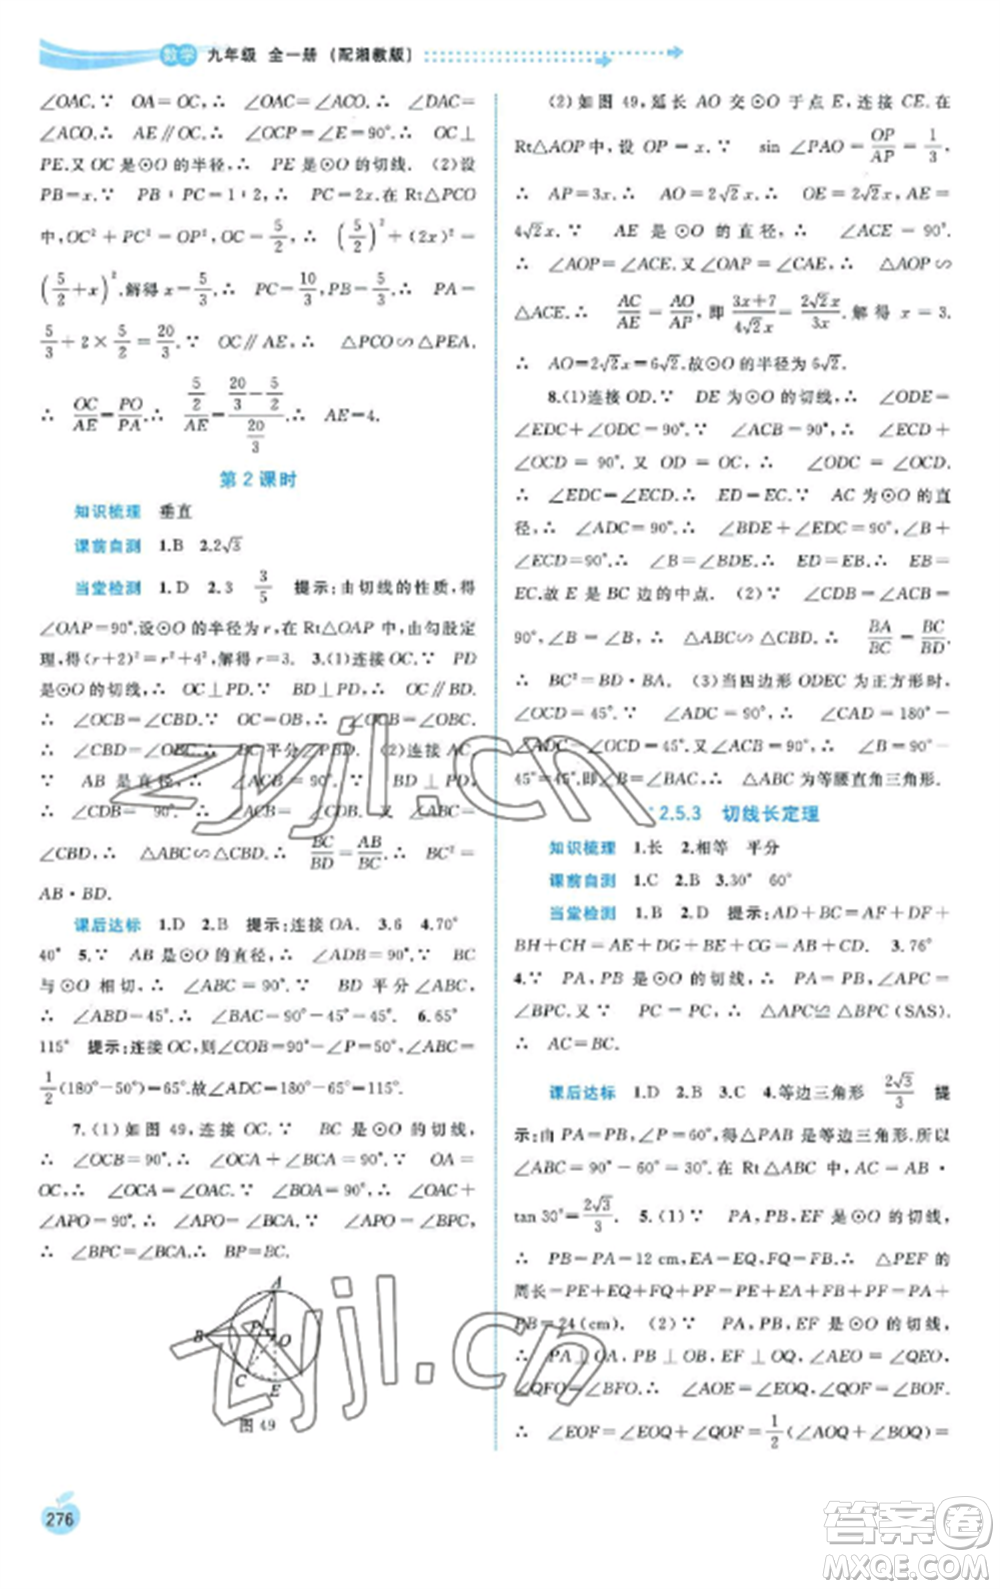 数学 九年级 全一册 (配湘教版)
∠OAC.∵ OA=OC,∴ ∠OAC=∠ACO.∴ ∠DAC=
∠ACO.∴ AE∥OC.∴ ∠OCP=∠E=90°.∴ OC⊥
PE.又 OC 是⊙O 的半径,∴ PE 是⊙O 的切线. (2)设
PB=x.∵ PB∶PC=1∶2,∴ PC=2x.在 Rt△PCO
中,OC²+PC²=OP².∴ (5/2)²+(2x)²=
(5/2+x)²,解得 x=5/3.∴ PC=10/3,PB=5/3.∴ PA=
5/3+2×5/2=20/3.∵ OC∥AE,∴ △PCO∽△PEA.
∴ OC/AE=PO/PA.∴ (5/2)/AE=(20/3-5/2)/(20/3).∴ AE=4.
第 2 课时
知识梳理 垂直
课前自测 1.B 2.2√3
当堂检测 1.D 2.3 3/5 提示:由切线的性质,得
∠OAP=90°.设⊙O 的半径为 r,在 Rt△OAP 中,由勾股定
理,得(r+2)²=r²+4²,解得 r=3. 3.(1)连接 OC.∵ PD
是⊙O 的切线,∴ OC⊥PD.∵ BD⊥PD,∴ OC∥BD.
∴ ∠OCB=∠CBD.∵ OC=OB,∴ ∠OCB=∠OBC.
∴ ∠CBD=∠OBC.∴ BC 平分∠PBD. (2)连接 AC.
∵ AB 是直径,∴ ∠ACB=90°.∵ BD⊥PD,
∴ ∠CDB=90°.∴ ∠ACB=∠CDB.∵ ∠ABC=
∠CBD,∴ △ABC∽△CBD.∴ BC/BD=AB/BC.∴ BC²=
AB·BD.
课后达标 1.D 2.B 提示:连接 OA. 3.6 4.70°
40° 5.∵ AB 是⊙O 的直径,∴ ∠ADB=90°.∵ BC
与⊙O 相切,∴ ∠ABC=90°.∵ BD 平分∠ABC,
∴ ∠ABD=45°.∴ ∠BAC=90°-45°=45°. 6.65°
115° 提示:连接 OC,则∠COB=90°-∠P=50°,∠ABC=
1/2(180°-50°)=65°.故∠ADC=180°-65°=115°.
7.(1)如图 49,连接 OC.∵ BC 是⊙O 的切线,
∴ ∠OCB=90°.∴ ∠OCA+∠BCA=90°.∵ OA=
OC,∴ ∠OCA=∠OAC.∵ ∠BOA=90°,∴ ∠OAC+
∠APO=90°.∴ ∠APO=∠BCA.∵ ∠APO=∠BPC,
∴ ∠BPC=∠BCA.∴ BP=BC.
A
B
P
O
C
E
图 49
(2)如图 49,延长 AO 交⊙O 于点 E,连接 CE.在
Rt△AOP 中,设 OP=x.∵ sin∠PAO=OP/AP=1/3,
∴ AP=3x.∴ AO=2√2x.∴ OE=2√2x,AE=
4√2x.∵ AE 是⊙O 的直径,∴ ∠ACE=90°.
∴ ∠AOP=∠ACE.又∠OAP=∠CAE,∴ △AOP∽
△ACE.∴ AC/AE=AO/AP,即(3x+7)/(4√2x)=2√2x/3x.解得 x=3.
∴ AO=2√2x=6√2.故⊙O 的半径为 6√2.
8.(1)连接 OD.∵ DE 为⊙O 的切线,∴ ∠ODE=
∠EDC+∠ODC=90°.∵ ∠ACB=90°,∴ ∠ECD+
∠OCD=90°.又 OD=OC,∴ ∠ODC=∠OCD.
∴ ∠EDC=∠ECD.∴ ED=EC.∵ AC 为⊙O 的直
径,∴ ∠ADC=90°.∴ ∠BDE+∠EDC=90°,∠B+
∠ECD=90°.∴ ∠B=∠BDE.∴ ED=EB.∴ EB=
EC.故 E 是 BC 边的中点. (2)∵ ∠CDB=∠ACB=
90°,∠B=∠B,∴ △ABC∽△CBD.∴ BA/BC=BC/BD.
∴ BC²=BD·BA. (3)当四边形 ODEC 为正方形时,
∠OCD=45°.∵ ∠ADC=90°,∴ ∠CAD=180°-
∠ADC-∠OCD=45°.又∠ACB=90°,∴ ∠B=90°-
45°=45°,即∠B=∠BAC,∴ △ABC 为等腰直角三角形.
*2.5.3 切线长定理
知识梳理 1.长 2.相等 平分
课前自测 1.C 2.B 3.30° 60°
当堂检测 1.B 2.D 提示:AD+BC=AF+DF+
BH+CH=AE+DG+BE+CG=AB+CD. 3.76°
4.∵ PA,PB 是⊙O 的切线,∴ PA=PB,∠APC=
∠BPC.又∵ PC=PC,∴ △APC≌△BPC(SAS).
∴ AC=BC.
课后达标 1.D 2.B 3.C 4.等边三角形 2√3/3 提
示:由 PA=PB,∠P=60°,得△PAB 是等边三角形.所以
∠ABC=90°-60°=30°.在 Rt△ABC 中,AC=AB·
tan 30°=2√3/3. 5.(1)∵ PA,PB,EF 是⊙O 的切线,
∴ PB=PA=12 cm,EA=EQ,FQ=FB.∴ △PEF 的
周长=PE+EQ+FQ+PF=PE+EA+FB+PF=PA+
PB=24(cm). (2)∵ PA,PB,EF 是⊙O 的切线,
∴ PA⊥OA,PB⊥OB,EF⊥OQ,∠AEO=∠QEO,
∠QFO=∠BFO.∴ ∠AOE=∠QOE,∠QOF=∠BOF.
∴ ∠EOF=∠EOQ+∠QOF=1/2(∠AOQ+∠BOQ)=
276
zyjl.cn
zyjl.cn
答案圈
MXQE.COM